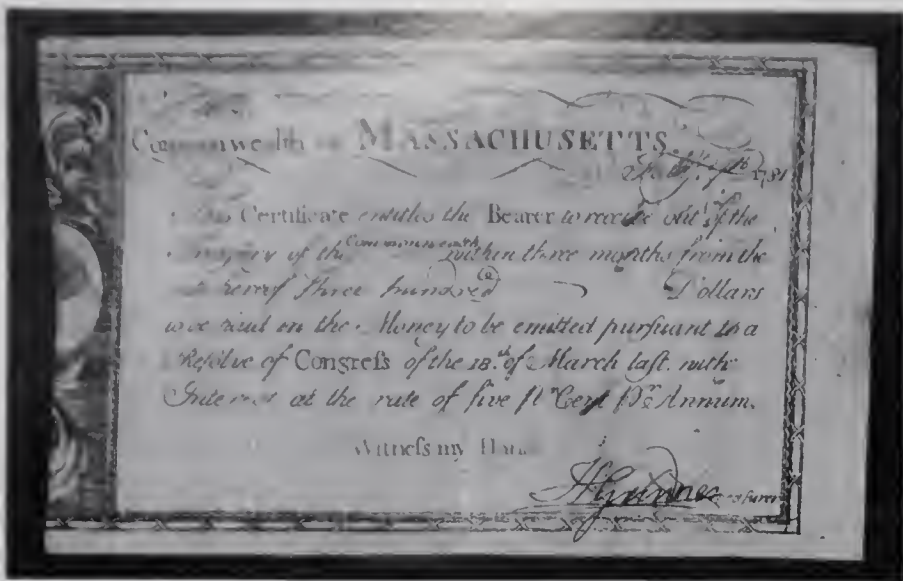 Commonwealth of MASSACHUSETTS.
1781
This Certificate entitles the Bearer to receive out of the
Treasury of the Commonwealth within three months from the
hereof three hundred Dollars
to be paid in the Money to be emitted purſuant to a
Reſolve of Congreſs of the 18.th of March laſt. with
Intereſt at the rate of five pr Cent pr Annum.
Witneſs my Hand
H Gardner Treaſurer